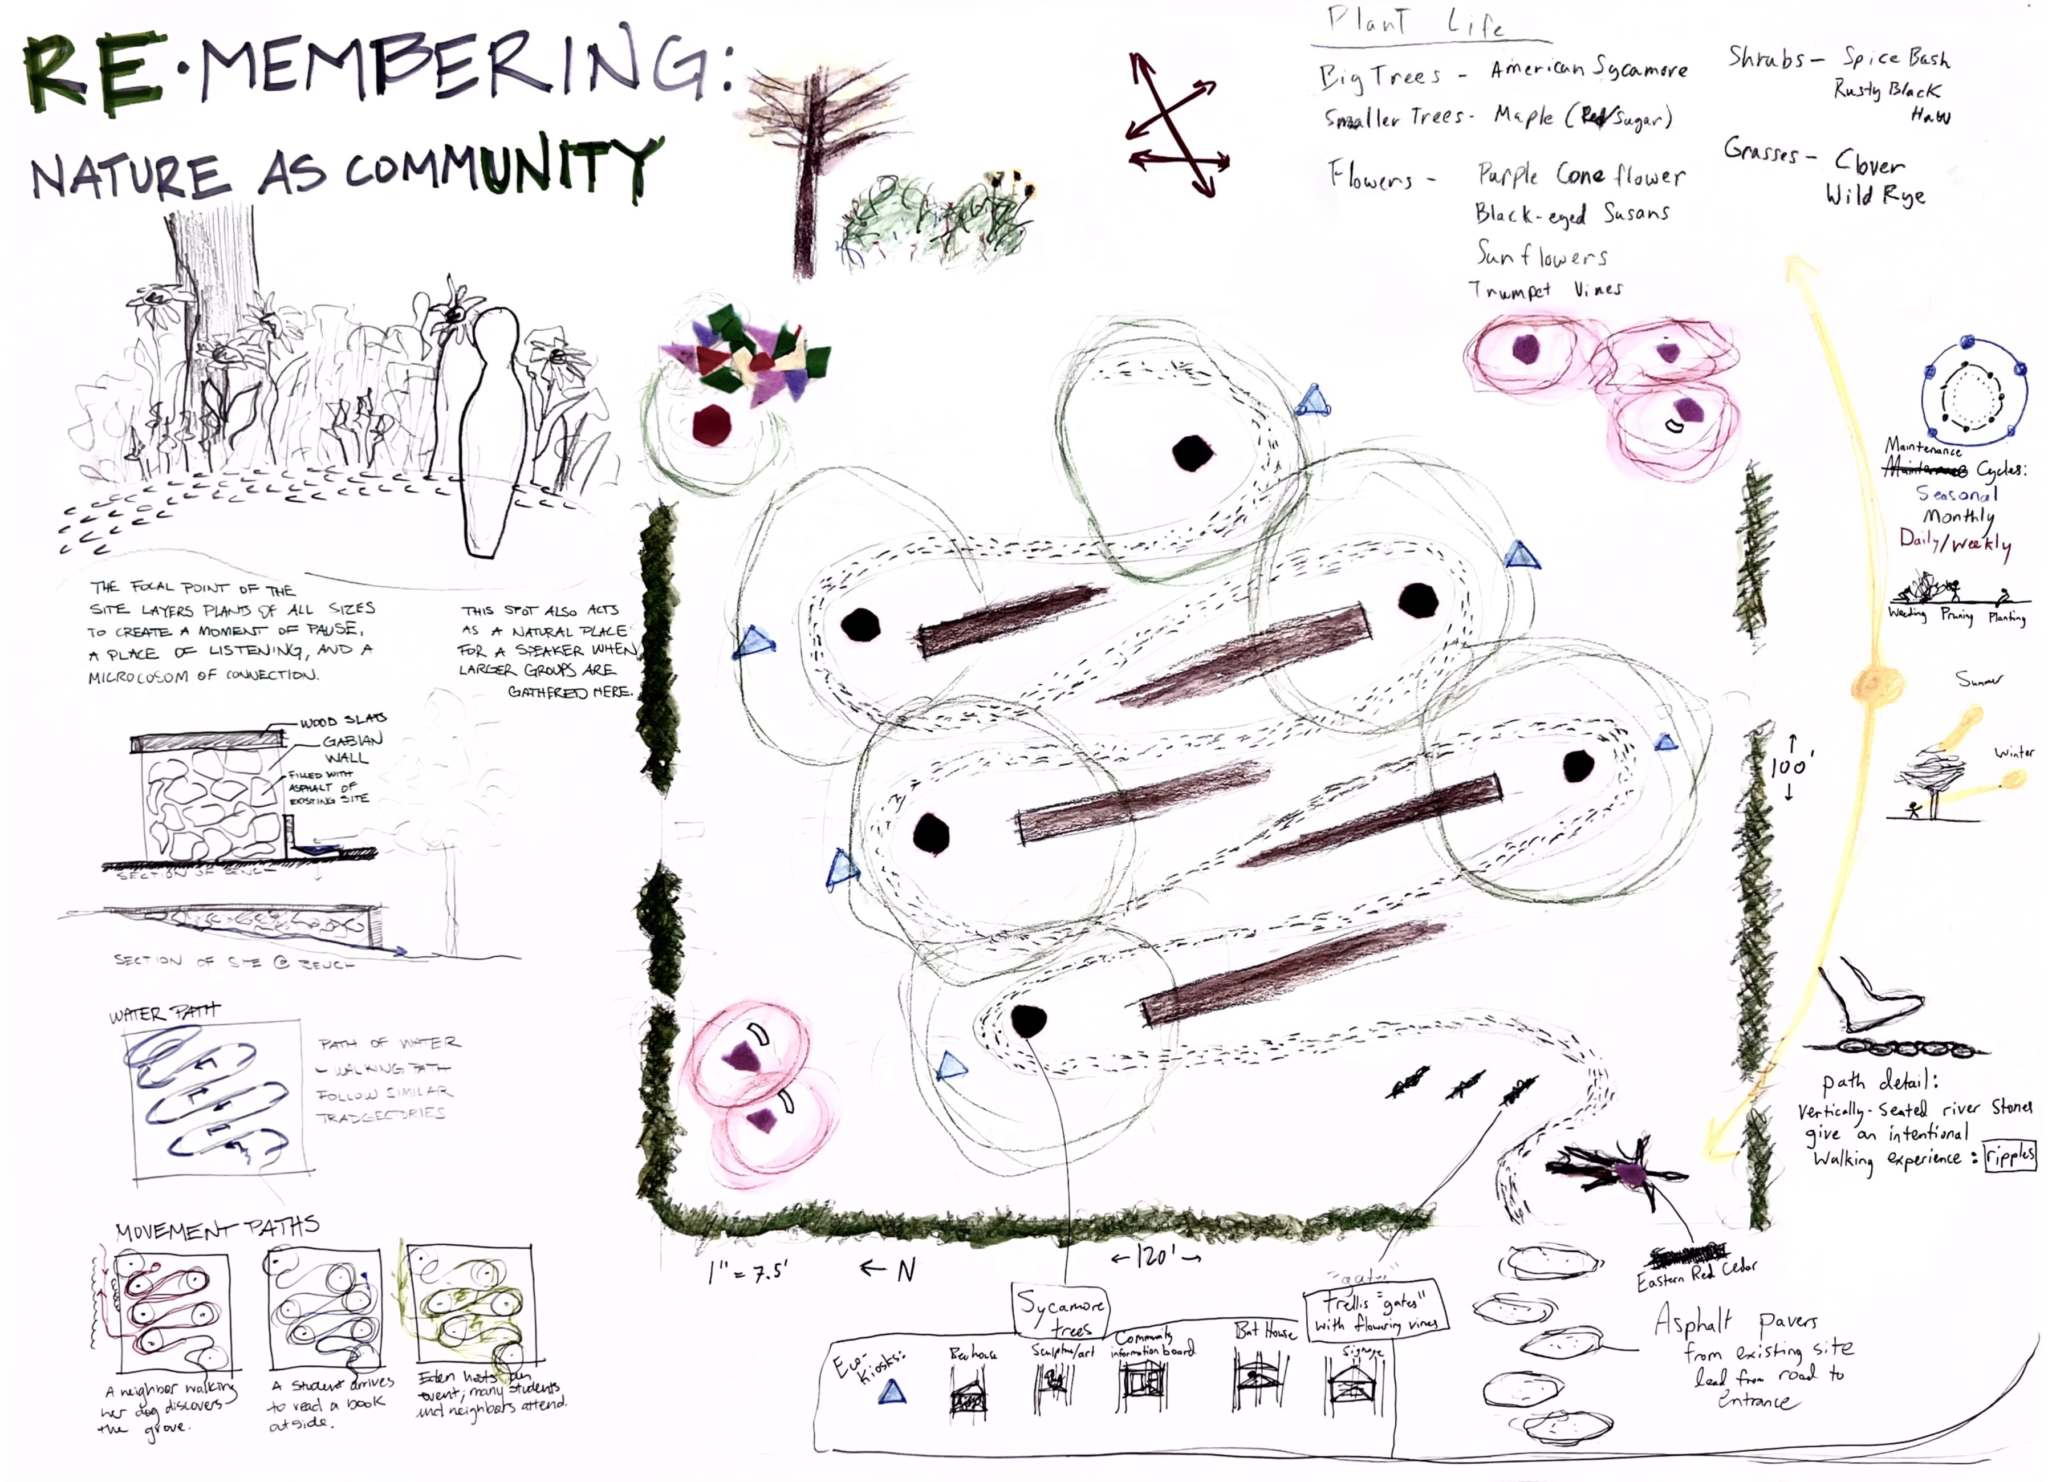 RE·MEMBERING:
NATURE AS COMMUNITY
Plant Life
Big Trees - American Sycamore
Smaller Trees - Maple (Red/Sugar)
Flowers - Purple Cone flower
Black-eyed Susans
Sunflowers
Trumpet Vines
Shrubs - Spice Bush
Rusty Black
Haw
Grasses - Clover
Wild Rye
THE FOCAL POINT OF THE
SITE LAYERS PLANTS OF ALL SIZES
TO CREATE A MOMENT OF PAUSE,
A PLACE OF LISTENING, AND A
MICROCOSM OF CONNECTION.
THIS SPOT ALSO ACTS
AS A NATURAL PLACE
FOR A SPEAKER WHEN
LARGER GROUPS ARE
GATHERED HERE.
WOOD SLATS
GABIAN
WALL
FILLED WITH
ASPHALT OF
EXISTING SITE
SECTION OF BENCH
SECTION OF SITE @ BENCH
WATER PATH
PATH OF WATER
WALKING PATH
FOLLOW SIMILAR
TRADGECTORIES
MOVEMENT PATHS
A neighbor walking
her dog discovers
the grove.
A student arrives
to read a book
outside.
Eden hosts an
event; many students
and neighbors attend.
Maintenance
Cycles:
Seasonal
Monthly
Daily/Weekly
Weeding Pruning Planting
Summer
Winter
100'
path detail:
Vertically-seated river stones
give an intentional
walking experience: ripples
1" = 7.5'
← N
←120'→
Sycamore
trees
"gates"
Trellis "gates"
with flowering vines
Eastern Red Cedar
Eco-
kiosks:
Bee house
Sculpture/art
Community
information board
Bat House
Signage
Asphalt pavers
from existing site
lead from road to
entrance